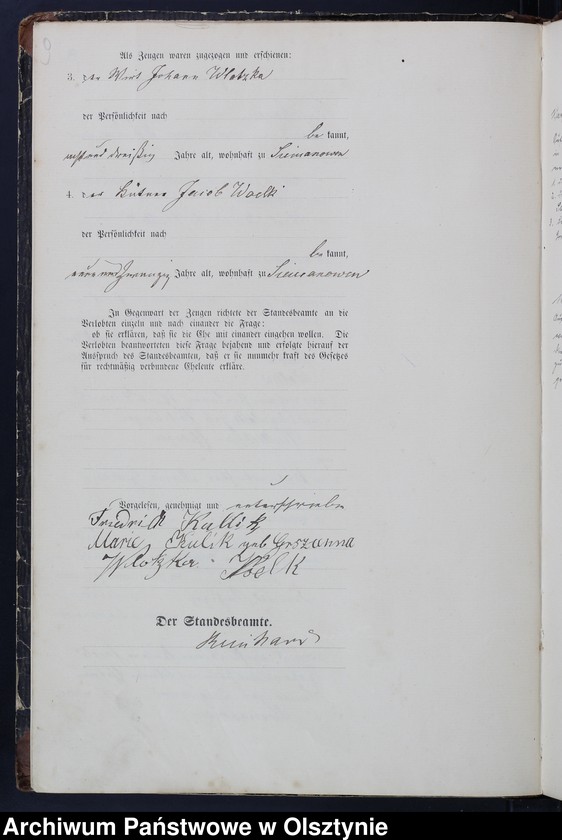 9
Als Zeugen waren zugezogen und erschienen:
3. der Wirt Johann Wlotzka
der Persönlichkeit nach
be kannt,
und dreißig Jahre alt, wohnhaft zu Siemanowen
4. der Jacob
der Persönlichkeit nach
be kannt,
und zwanzig Jahre alt, wohnhaft zu Siemanowen
In Gegenwart der Zeugen richtete der Standesbeamte an die
Verlobten einzeln und nach einander die Frage:
ob sie erklären, daß sie die Ehe mit einander eingehen wollen. Die
Verlobten beantworteten diese Frage bejahend und erfolgte hierauf der
Ausspruch des Standesbeamten, daß er sie nunmehr kraft des Gesetzes
für rechtmäßig verbundene Eheleute erkläre.
Vorgelesen, genehmigt und unterschrieben
Friedrich Kullik
Marie Kulik geb Gorszanna
Wlotzka
Der Standesbeamte.
Reinhard
Archiwum Państwowe w Olsztynie